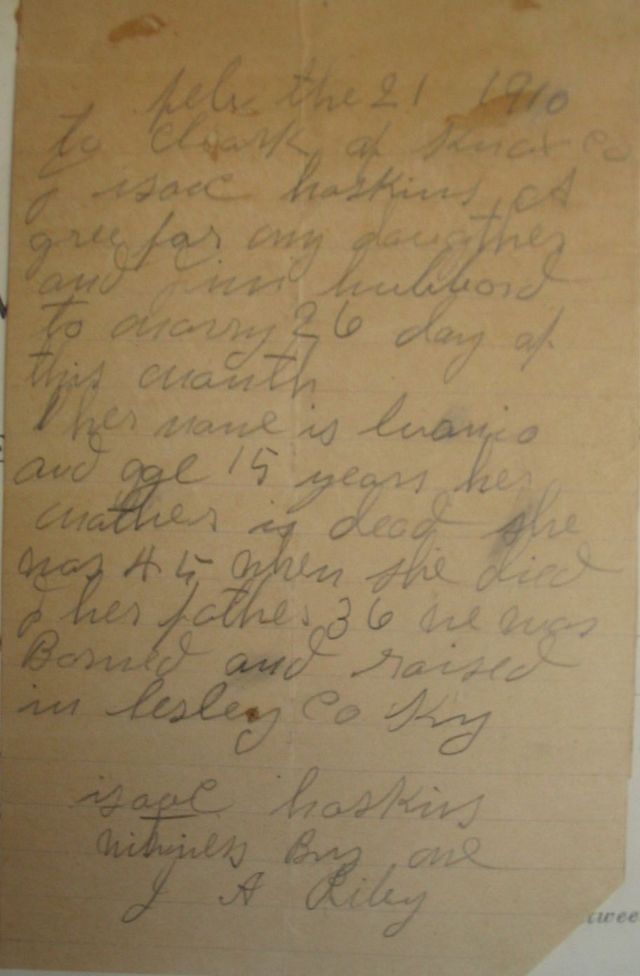 feb the 21 1910
to Cleark of Knox Co
I isaac hoskins A
gree for my daughter
and Jim hubbord
to marry 26 day of
this month
her name is
and age 15 years her
mother is dead she
was 45 when she died
& her father 36 he was
Borned and raised
in lesley Co Ky
isaac hoskins
witness By me
J A Riley
twee